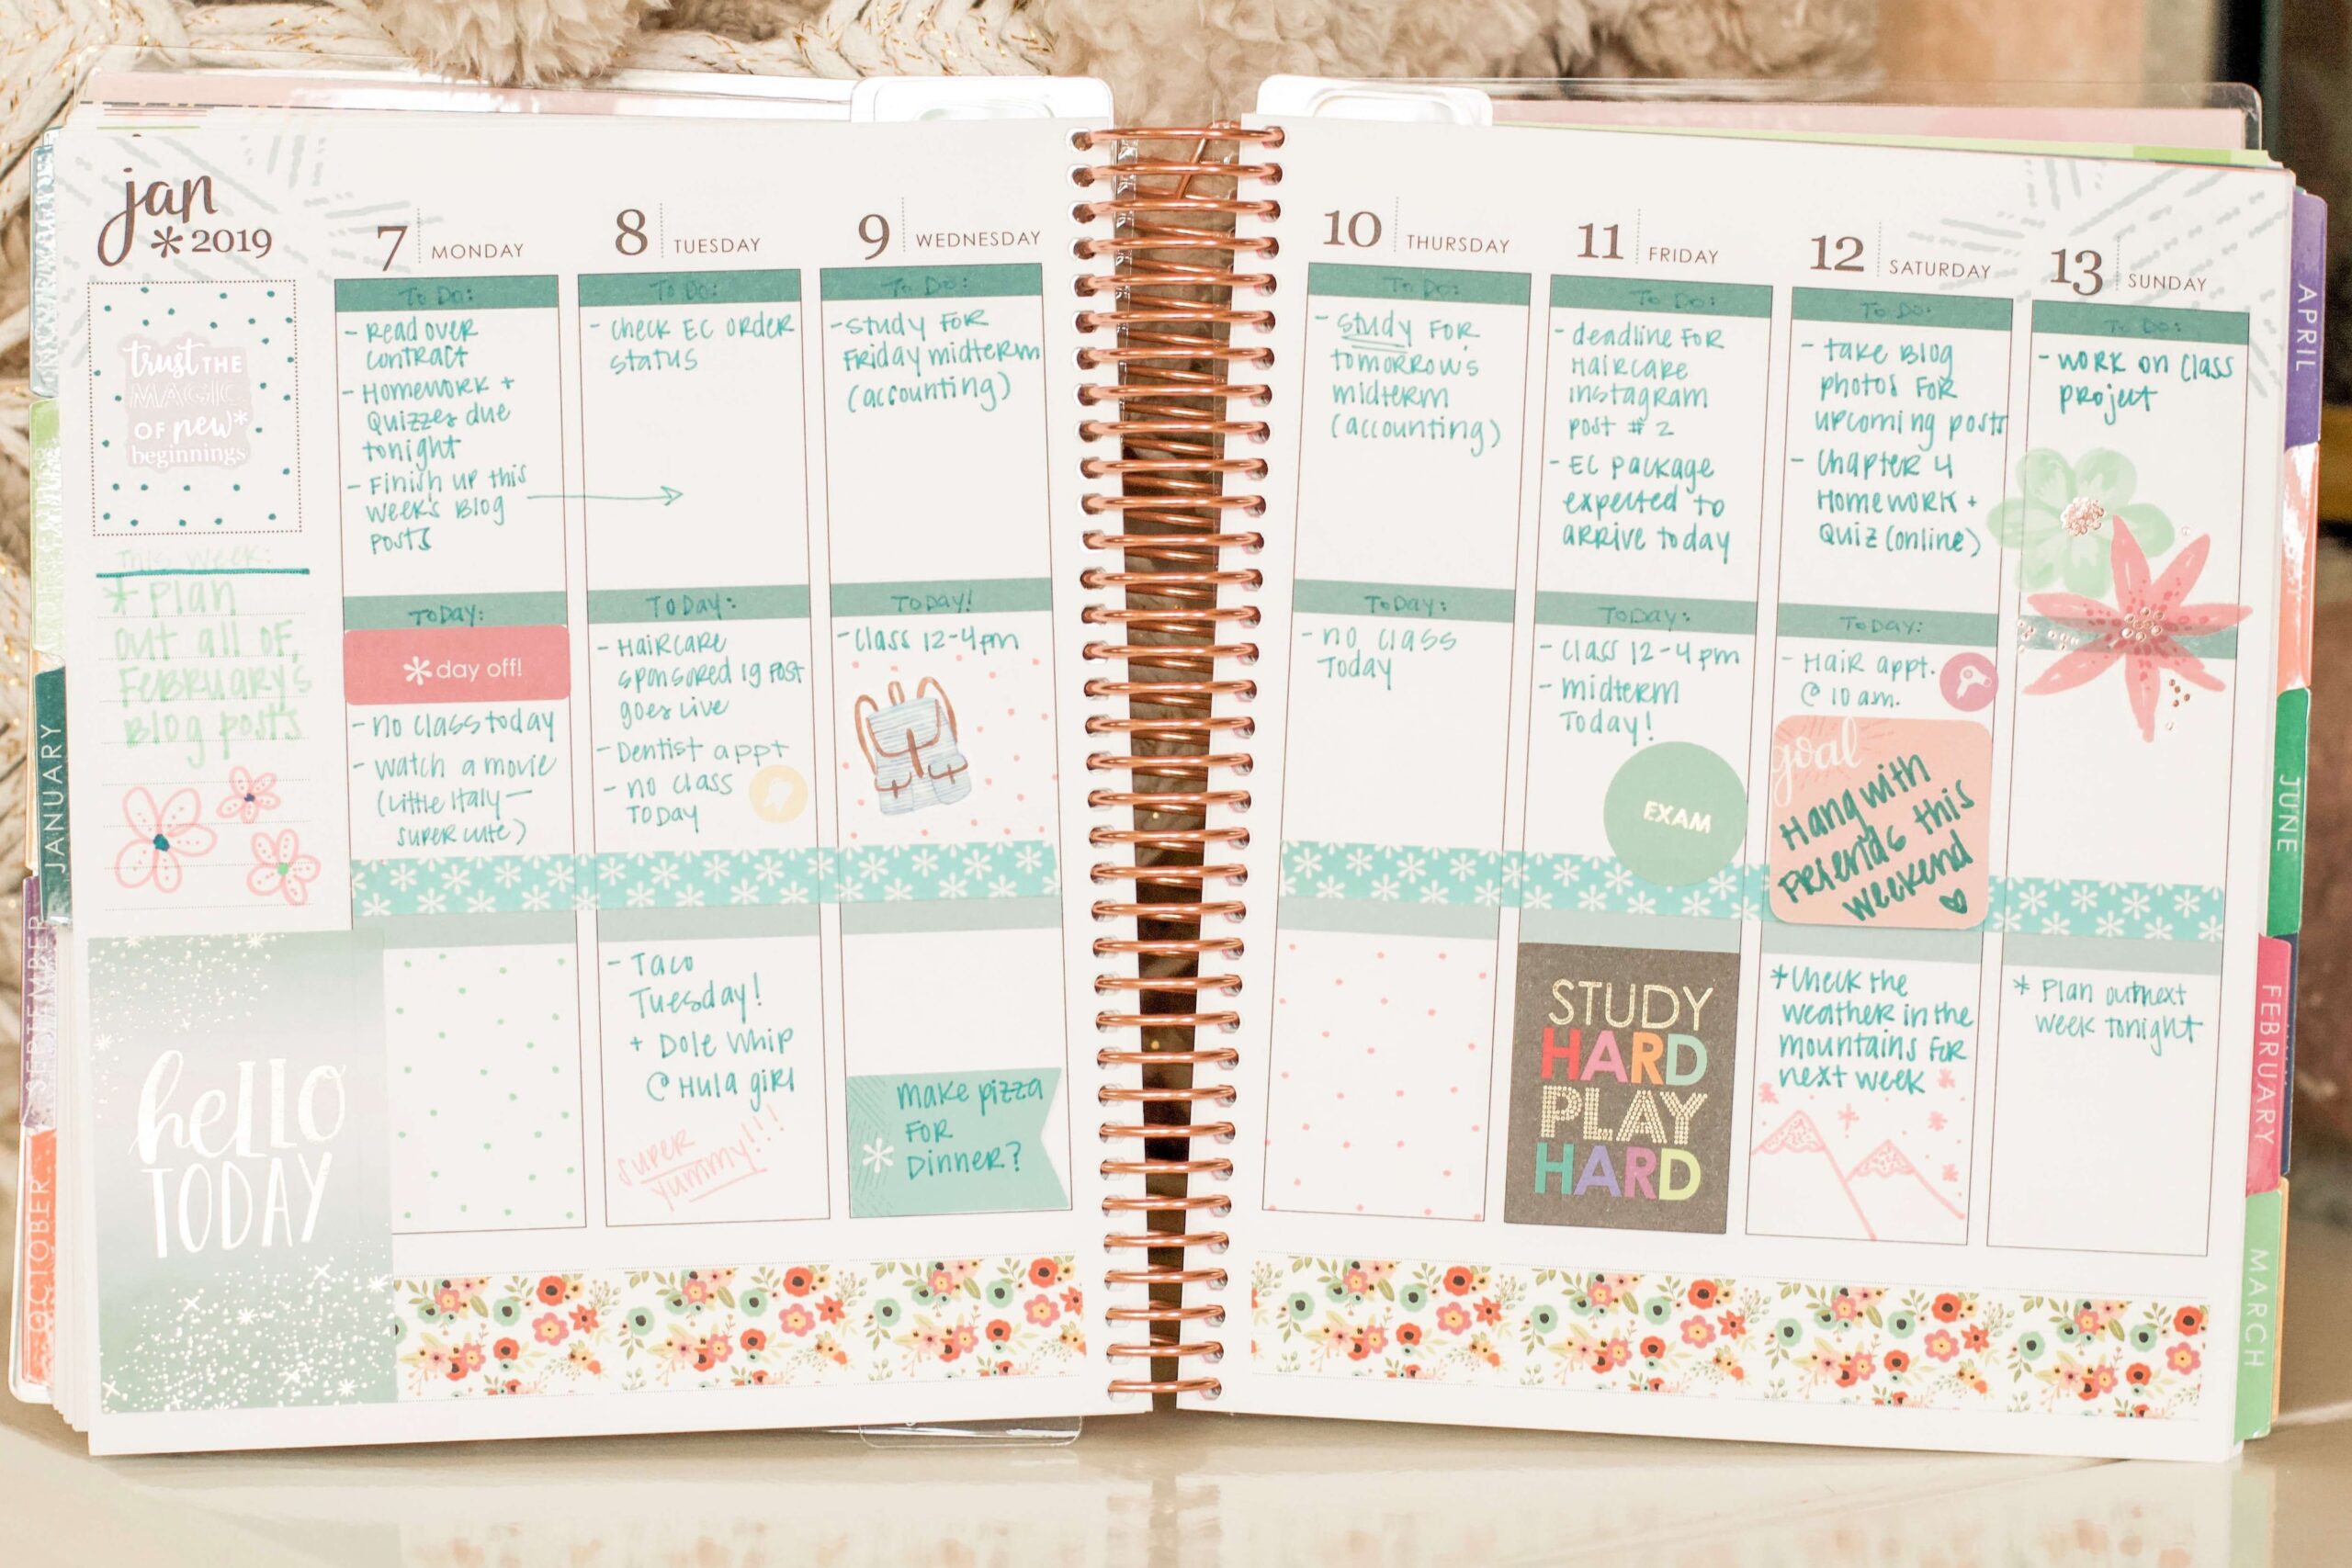 jan
*2019
trust THE
MAGIC
OF new*
beginnings
This week:
* Plan
out all of
February's
Blog posts
hello
TODAY
7 MONDAY
To Do:
- Read over
contract
- Homework +
Quizzes due
tonight
- Finish up this
week's Blog
posts
Today:
*day off!
- no class today
- watch a movie
(Little Italy —
super cute)
8 TUESDAY
To Do:
- Check EC order
status
Today:
- Haircare
sponsored ig post
goes live
- Dentist appt
- no class
Today
- Taco
Tuesday!
+ Dole Whip
@ Hula girl
super
yummy!!!
9 WEDNESDAY
To Do:
- Study for
Friday midterm
(accounting)
Today!
- Class 12-4pm
make pizza
for
Dinner?
10 THURSDAY
To Do:
- Study for
tomorrow's
midterm
(accounting)
Today:
- no class
Today
11 FRIDAY
To Do:
- deadline for
Haircare
instagram
post # 2
- EC package
expected to
arrive today
Today:
- Class 12-4pm
- midterm
Today!
EXAM
STUDY
HARD
PLAY
HARD
12 SATURDAY
To Do:
- take Blog
photos for
upcoming posts
- Chapter 4
Homework +
Quiz (online)
Today:
- Hair appt.
@ 10 am.
goal
Hang with
friends this
weekend
*Check the
weather in the
mountains for
next week
13 SUNDAY
To Do:
- work on class
project
* Plan out next
week tonight
JANUARY
SEPTEMBER
OCTOBER
APRIL
JUNE
FEBRUARY
MARCH